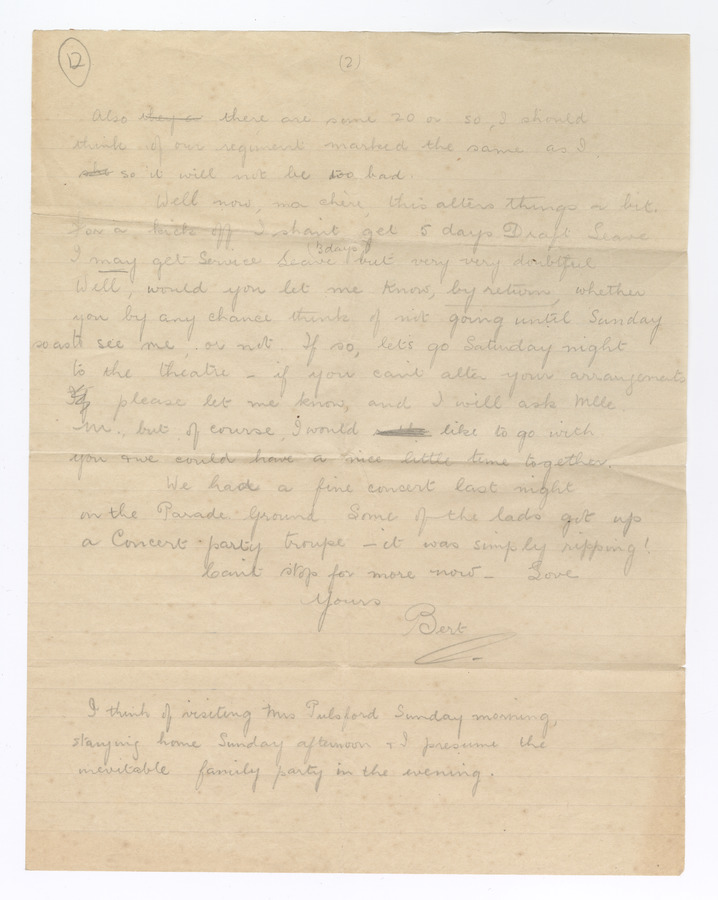 12
(2)
Also there are some 20 or so, I should
think of our regiment marked the same as I
so it will not be too bad.
Well now, ma chère, this alters things a bit.
For a kick off I shan't get 5 days Draft Leave
(3 days)
I may get Service Leave but very very doubtful
Well, would you let me know, by return, whether
you by any chance think of not going until Sunday
so as to see me, or not. If so, lets go Saturday night
to the theatre – if you can't alter your arrangements
please let me know, and I will ask Mlle
M., but of course, I would like to go with
you & we could have a nice little time together.
We had a fine concert last night
on the Parade Ground Some of the lads got up
a Concert party troupe – it was simply ripping!
Can't stop for more now – Love
Yours
Bert
I think of visiting Mrs Pulsford Sunday morning,
staying home Sunday afternoon & I presume the
inevitable family party in the evening.